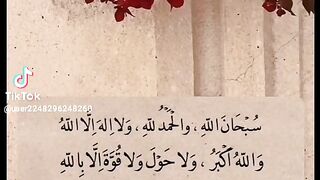 TikTok
@user2248296248260
سُبْحَانَ اللهِ ، والْحَمْدُ للهِ ، وَلا اِلهَ اِلَّا اللهُ
وَاللهُ اَكْبَرُ ، وَلا حَوْلَ وَلا قُوَّةَ اِلَّا بِاللهِ